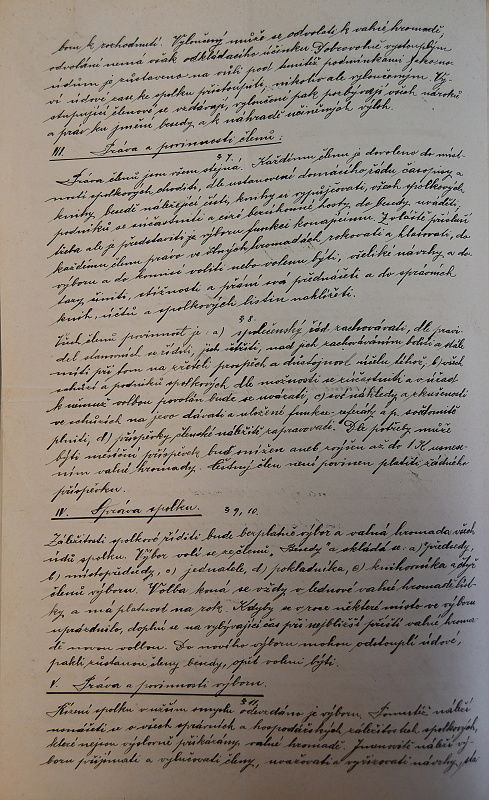 bom k rozhodnutí. Vyloučený může se odvolati k valné hromadě,
odvolání nemá však odkládacího účinku. Dobrovolně vystouplým
údům je zůstaveno na vůli pod týmiž podmínkami jako no-
ví údové zase ke spolku přistoupiti, nikoliv ale vyloučeným. Vy-
stupující členové se vzdávají, vyloučení pak pozbývají všech nároků
a práv ku jmění besedy a k náhradě učiněných výloh.
III. Práva a povinnosti členů:
§ 7.
Práva členů jsou všem stejná. Každému členu je dovoleno do míst-
ností spolkových choditi, dle ustanovení domácího řádu časopisy a
knihy, besedě náležející čísti, knihy si vypůjčovati, všech spolkových
podniků se súčastniti a cizí bezúhonné hosty do besedy uváděti,
třeba ale je představiti výboru funkci konajícímu. Zvláště přísluší
každému členu právo ve valných hromadách rokovati a hlasovati, do
výboru a do komisí voliti nebo volenu býti, veškeré návrhy, a do-
tazy činiti, stížnosti a přání svá přednášeti a do správních
knih, účtů a spolkových listin nahlížeti.
§ 8.
Všech členů povinnost je: a) společenský řád zachovávati, dle pravi-
del stanovených se říditi, jich šetřiti, nad jich zachováváním bdíti a stálé
míti při tom na zřeteli prospěch a důstojnost účelu téhož, b) všech
schůzí a podniků spolkových dle možnosti se zúčastniti a v úřad
k němuž volbou povolán bude se uvázati, c) své náhledy a zkušenosti
ve schůzích na jevo dávati a uložené funkce, referáty a p. svědomitě
plniti, d) příspěvky členské náležitě zapravovati. Dle potřeby může
býti měsíční příspěvek buď snížen aneb zvýšen až do 1 K usnese-
ním valné hromady. Čestný člen není povinen platiti žádného
příspěvku.
IV. Správa spolku. § 9, 10.
Záležitosti spolkové říditi bude bezplatně výbor a valná hromada všech
údů spolku. Výbor volí se ze členů "Besedy" a skládá se: a) předsedy,
b) místopředsedy, c) jednatele, d) pokladníka, e) knihovníka a
členů výboru. Volba koná se vždy v lednové valné hromadě líst-
ky, a má platnost na rok. Kdyby se v roce některé místo ve výboru
uprázdnilo, doplní se na vybývající čas při nejbližší příští valné hroma-
dě novou volbou. Do nového výboru mohou odstouplí údové,
pakli zůstanou členy besedy, opět voleni býti.
V. Práva a povinnosti výboru.
§ 11.
Řízení spolku v užším smyslu odevzdáno je výboru. Tomutéž náleží
usnášeti se o všech správních a hospodářských záležitostech spolkových,
které nejsou výslovně přikázány valné hromadě. Jmenovitě náleží vý-
boru přijímati a vylučovati členy, uvažovati a vyřizovati návrhy,